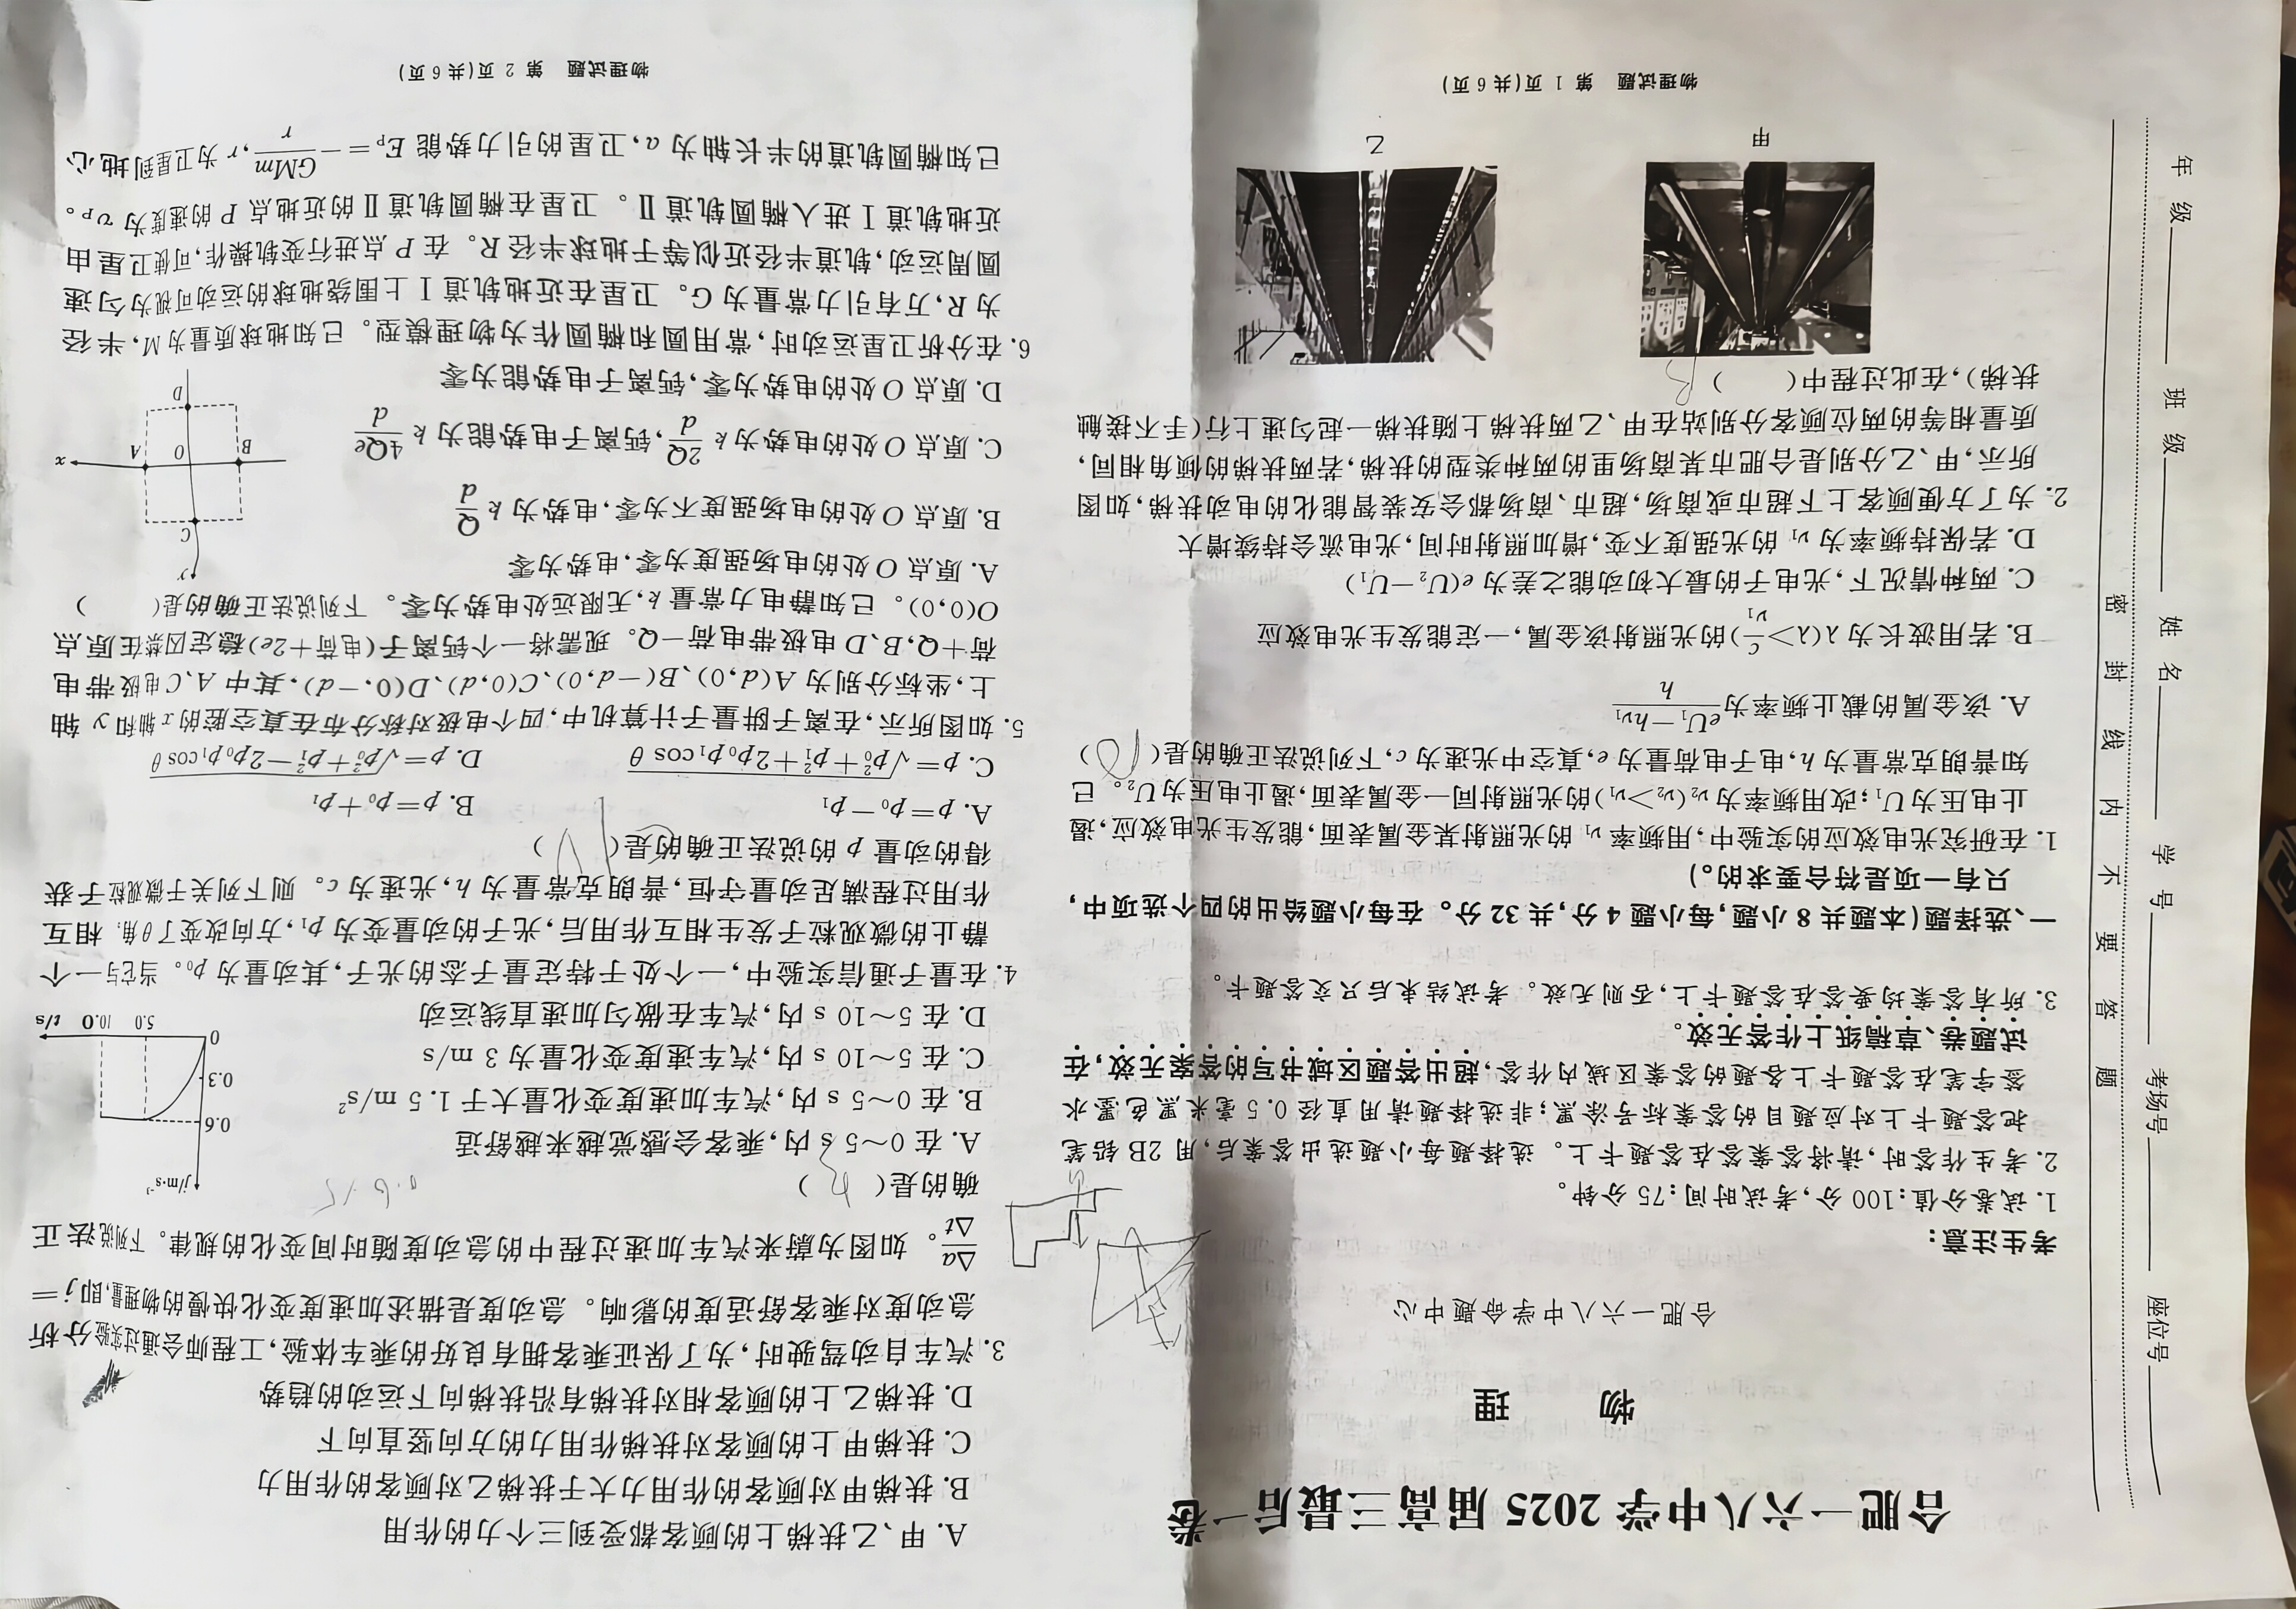 合肥一六八中学 2025 届高三最后一卷
物 理
合肥一六八中学命题中心
考生注意:
1. 试卷分值:100 分,考试时间:75 分钟。
2. 考生作答时,请将答案答在答题卡上。选择题每小题选出答案后,用 2B 铅笔
把答题卡上对应题目的答案标号涂黑;非选择题请用直径 0.5 毫米黑色墨水
签字笔在答题卡上各题的答案区域内作答,超出答题区域书写的答案无效,在
试题卷、草稿纸上作答无效。
3. 所有答案均要答在答题卡上,否则无效。考试结束后只交答题卡。
一、选择题(本题共 8 小题,每小题 4 分,共 32 分。在每小题给出的四个选项中,
只有一项是符合要求的。)
1. 在研究光电效应的实验中,用频率 ν₁ 的光照射某金属表面,能发生光电效应,遏
止电压为 U₁;改用频率为 ν₂(ν₂>ν₁)的光照射同一金属表面,遏止电压为 U₂。已
知普朗克常量为 h,电子电荷量为 e,真空中光速为 c,下列说法正确的是( )
A. 该金属的截止频率为 (eU₁−hν₁)/h
B. 若用波长为 λ(λ>c/ν₁)的光照射该金属,一定能发生光电效应
C. 两种情况下,光电子的最大初动能之差为 e(U₂−U₁)
D. 若保持频率为 ν₁ 的光强度不变,增加照射时间,光电流会持续增大
2. 为了方便顾客上下超市或商场,超市、商场都会安装智能化的电动扶梯,如图
所示,甲、乙分别是合肥市某商场里的两种类型的扶梯,若两扶梯的倾角相同,
质量相等的两位顾客分别站在甲、乙两扶梯上随扶梯一起匀速上行(手不接触
扶梯),在此过程中( )
甲
乙
物理试题 第 1 页(共 6 页)
A. 甲、乙扶梯上的顾客都受到三个力的作用
B. 扶梯甲对顾客的作用力大于扶梯乙对顾客的作用力
C. 扶梯甲上的顾客对扶梯作用力的方向竖直向下
D. 扶梯乙上的顾客相对扶梯有沿扶梯向下运动的趋势
3. 汽车自动驾驶时,为了保证乘客拥有良好的乘车体验,工程师会通过实验分析
急动度对乘客舒适度的影响。急动度是描述加速度变化快慢的物理量,即 j=
Δa/Δt。如图为蔚来汽车加速过程中的急动度随时间变化的规律。下列说法正
确的是( )
A. 在 0~5 s 内,乘客会感觉越来越舒适
B. 在 0~5 s 内,汽车加速度变化量大于 1.5 m/s²
C. 在 5~10 s 内,汽车速度变化量为 3 m/s
D. 在 5~10 s 内,汽车在做匀加速直线运动
j/m·s⁻³
0.6
0.3
0
5.0
10.0
t/s
4. 在量子通信实验中,一个处于特定量子态的光子,其动量为 p₀。当它与一个
静止的微观粒子发生相互作用后,光子的动量变为 p₁,方向改变了 θ 角,相互
作用过程满足动量守恒,普朗克常量为 h,光速为 c。则下列关于微观粒子获
得的动量 p 的说法正确的是( )
A. p=p₀−p₁
B. p=p₀+p₁
C. p=√(p₀²+p₁²+2p₀p₁cos θ)
D. p=√(p₀²+p₁²−2p₀p₁cos θ)
5. 如图所示,在离子阱量子计算机中,四个电极对称分布在真空腔的 x 轴和 y 轴
上,坐标分别为 A(d,0)、B(−d,0)、C(0,d)、D(0,−d),其中 A、C 电极带电
荷+Q,B、D 电极带电荷−Q。现需将一个钙离子(电荷+2e)稳定囚禁在原点
O(0,0)。已知静电力常量 k,无限远处电势为零。下列说法正确的是( )
A. 原点 O 处的电场强度为零,电势为零
B. 原点 O 处的电场强度不为零,电势为 k Q/d
C. 原点 O 处的电势为 k 2Q/d,钙离子电势能为 k 4Qe/d
D. 原点 O 处的电势为零,钙离子电势能为零
y
C
B
O
A
x
D
6. 在分析卫星运动时,常用圆和椭圆作为物理模型。已知地球质量为 M,半径
为 R,万有引力常量为 G。卫星在近地轨道 I 上围绕地球的运动可视为匀速
圆周运动,轨道半径近似等于地球半径 R。在 P 点进行变轨操作,可使卫星由
近地轨道 I 进入椭圆轨道 II。卫星在椭圆轨道 II 的近地点 P 的速度为 vₚ。
已知椭圆轨道的半长轴为 a,卫星的引力势能 Eₚ=−GMm/r,r 为卫星到地心
物理试题 第 2 页(共 6 页)
年级
班级
姓名
学号
考场号
座位号
密封线内不要答题